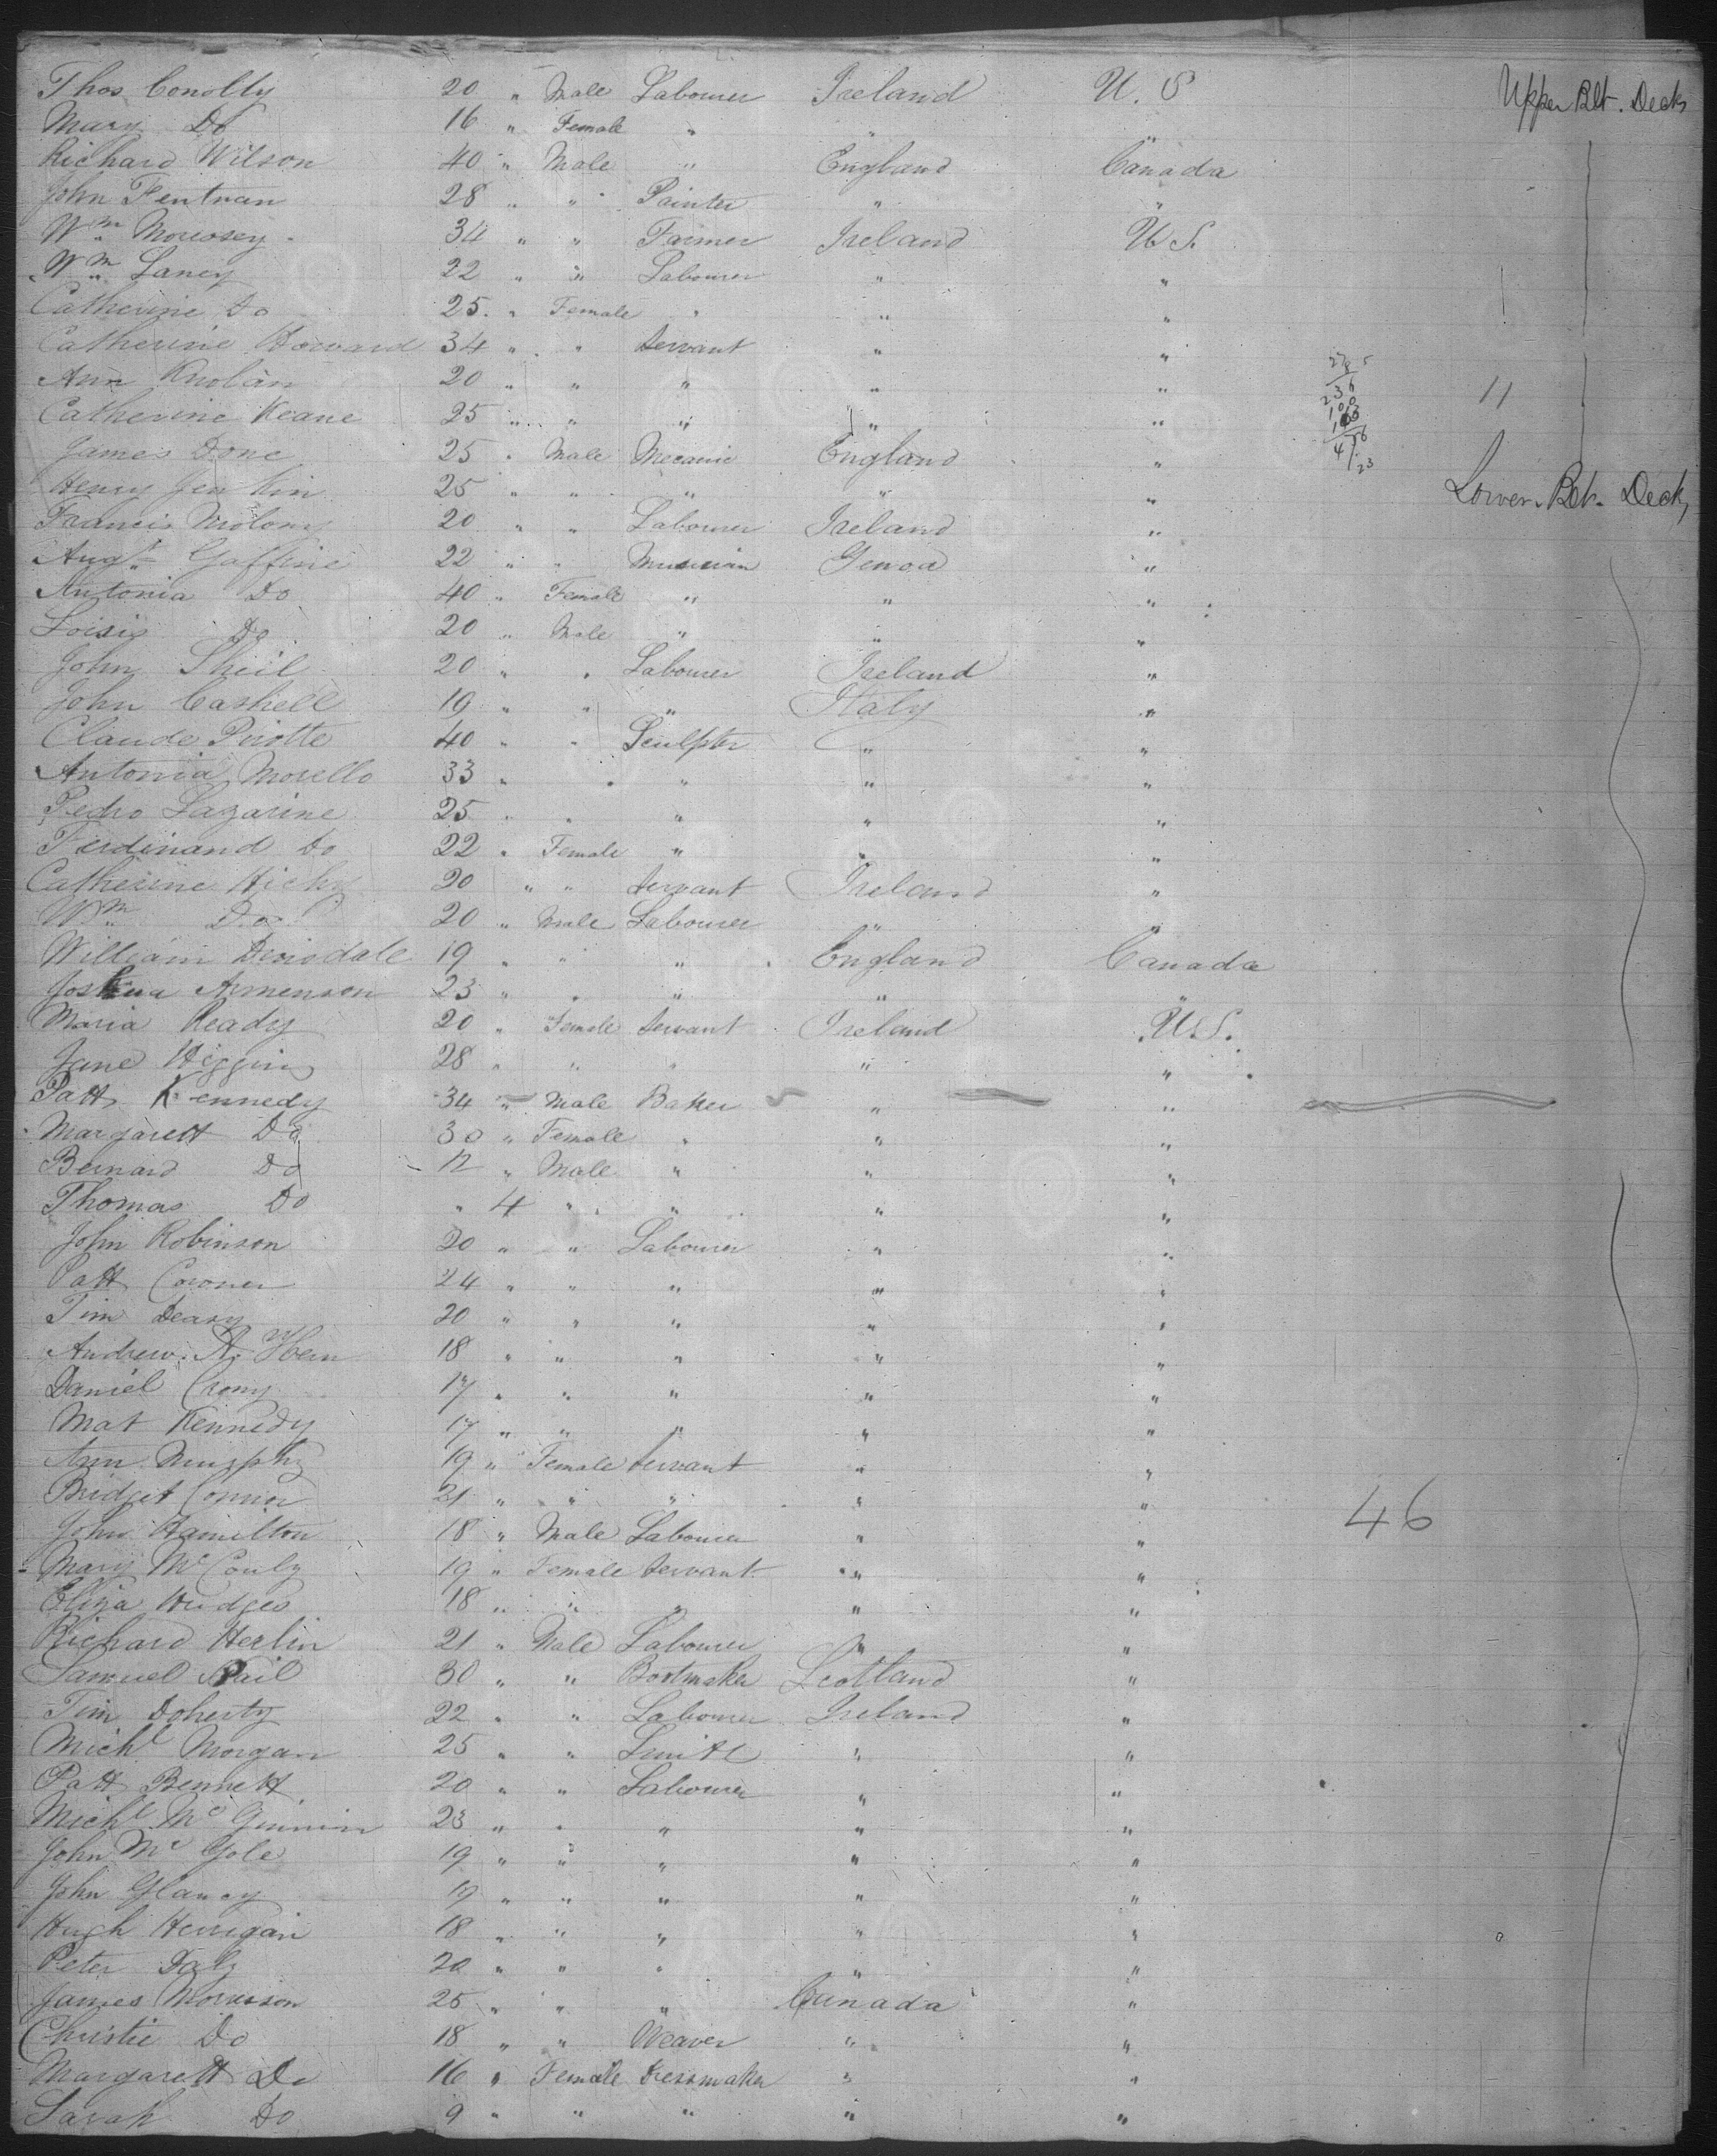 Thos Conolly 20 " Male Labourer Ireland U. S Upper Bet. Deck
Mary Do 16 " Female " " "
Richard Wilson 40 " Male " England Canada
John Fentnan 28 " " Painter " "
Wm Morossey 34 " " Farmer Ireland U S.
Wm Laney 22 " " Labourer " "
Catherine Do 25 " Female " " "
Catherine Howard 34 " " Servant " "
Ann Knolan 20 " " " " " 11
Catherine Keane 25 " " " " "
James Done 25 " Male Mecanic England "
Henry Jenkin 25 " " " " " Lower Bet. Deck,
Francis Molony 20 " " Labourer Ireland "
Augt Gaffine 22 " " Musician Genoa "
Antonia Do 40 " Female " " "
Loisig Do 20 " Male " " "
John Sheil 20 " " Labourer Ireland "
John Cashell 19 " " " Italy "
Claude Piotte 40 " " Sculpter " "
Antonia Morello 33 " " " " "
Pedro Lazarine 25 " " " " "
Ferdinand Do 22 " Female " " "
Catherine Hicky 20 " " Servant Ireland "
Wm Do 20 " Male Labourer " "
William Densdale 19 " " " England Canada
Joshua Armenson 23 " " " " "
Maria Ready 20 " Female Servant Ireland U. S.
Jane Higgins 28 " " " " "
Patt Kennedy 34 " Male Baker " "
Margarett Do 30 " Female " " "
Bernard Do 12 " Male " " "
Thomas Do " 4 " " " "
John Robinson 20 " " Labourer " "
Patt Coroner 24 " " " " "
Tim Deasy 20 " " " " "
Andrew A. Hern 18 " " " " "
Daniel Crony 17 " " " " "
Mat Kennedy 17 " " " " "
Ann Murphy 19 " Female Servant " "
Bridget Connor 21 " " " " " 46
John Hamilton 18 " Male Labourer " "
Mary McCouly 19 " Female Servant " "
Eliza Hudges 18 " " " " "
Richard Herlin 21 " Male Labourer " "
Samuel Nail 30 " " Bootmaker Scotland "
Tim Doherty 22 " " Labourer Ireland "
Michl Morgan 25 " " Smith " "
Patt Bennett 20 " " Labourer " "
Michl Mc Ginnin 23 " " " " "
John Mc Gole 19 " " " " "
John Glancy 19 " " " " "
Hugh Herrigan 18 " " " " "
Peter Daly 20 " " " " "
James Morrisson 25 " " " Canada "
Christie Do 18 " " Weaver " "
Margarett Do 16 " Female Dressmaker " "
Sarah Do 9 " " " " "